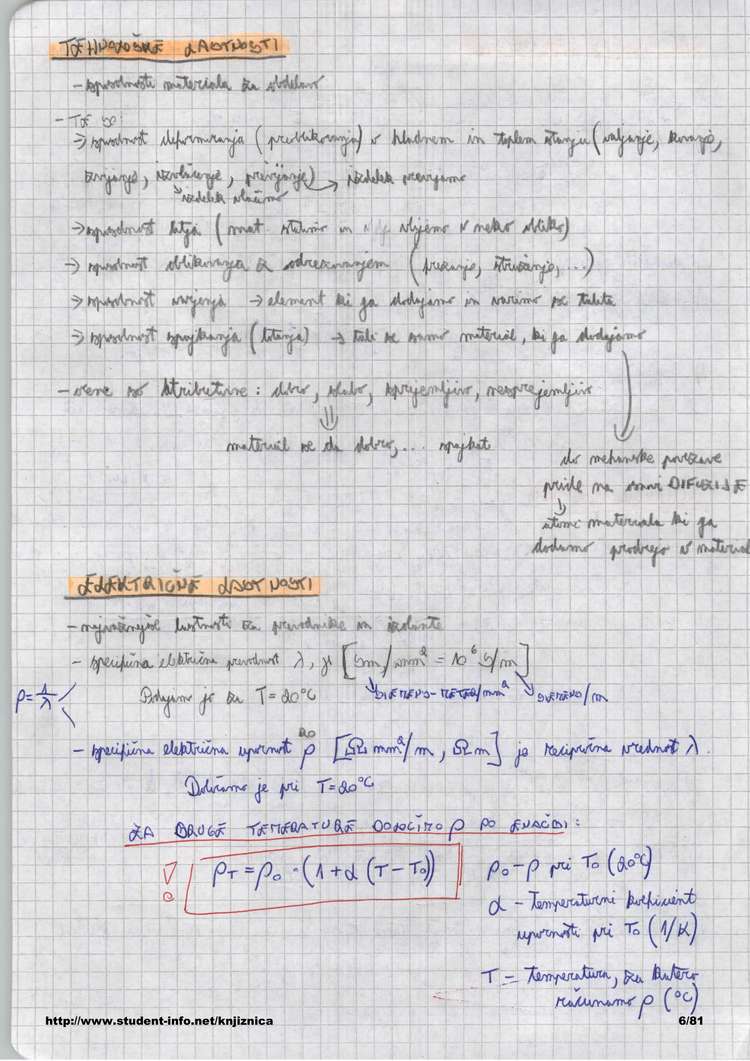 TEHNOLOŠKE LASTNOSTI
- sposobnosti materiala za obdelavo
- TE SO:
→ sposobnost deformiranja (preoblikovanja) v hladnem in toplem stanju (valjanje, kovanje,
izvlačenje, previjanje) → izdelek previjamo
↘ izdelek vlačimo
→ sposobnost litja (mat. stalimo in vlijemo v neko obliko)
→ sposobnost oblikovanja z odrezovanjem (rezkanje, struženje, ...)
→ sposobnost varjenja → element ki ga dodajamo in varimo se talita
→ sposobnost spajkanja (lotanja) → tali se samo material, ki ga dodajamo
- ocene so atributivne: dobro, slabo, sprejemljivo, nesprejemljivo
material se da dobro, ... spajkat
do mehanske povezave
pride na osnovi DIFUZIJE
atomi materiala ki ga
dodamo prodrejo v material
ELEKTRIČNE LASTNOSTI
- najvažnejše lastnosti za prevodnike in izolante
- specifična električna prevodnost λ, je [Sm/mm² = 10⁶ S/m]
ρ = 1/λ
Podajamo jo za T = 20°C
SIEMENS-METER/mm²
SIEMENS/m
- specifična električna upornost ρ [Ωmm²/m, Ωm] je recipročna vrednost λ.
Določamo je pri T = 20°C
ZA DRUGE TEMPERATURE DOLOČIMO ρ PO ENAČBI:
ρT = ρ0 · (1 + α (T - T0))
ρ0 - ρ pri T0 (20°C)
α - temperaturni koeficient
upornosti pri T0 (1/K)
T = temperatura, za katero
računamo ρ (°C)
http://www.student-info.net/knjiznica
6/81